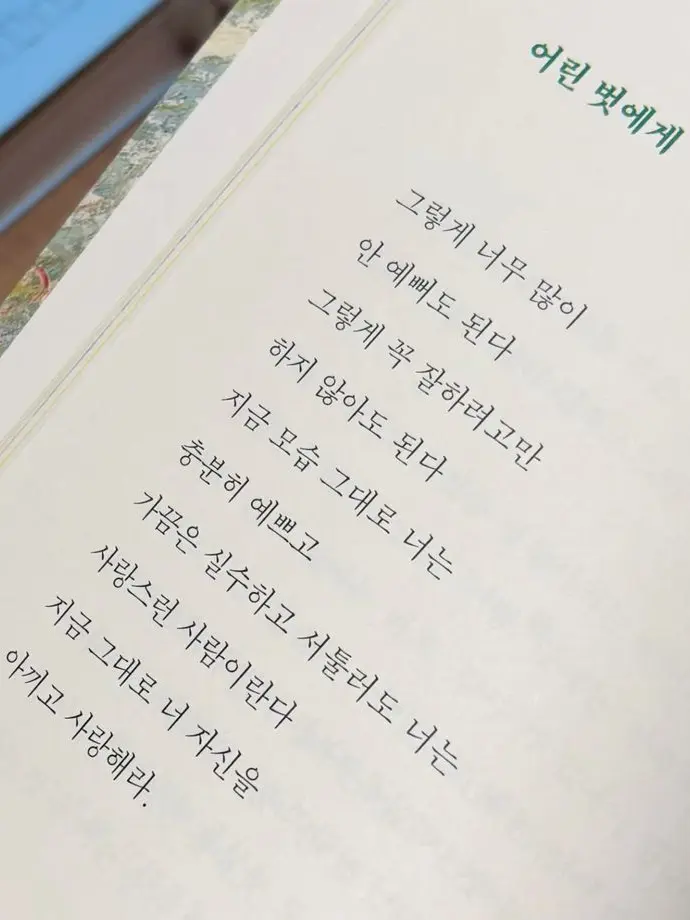 어린 벗에게
그렇게 너무 많이
안 예뻐도 된다
그렇게 꼭 잘하려고만
하지 않아도 된다
지금 모습 그대로 너는
충분히 예쁘고
가끔은 실수하고 서툴러도 너는
사랑스런 사람이란다
지금 그대로 너 자신을
아끼고 사랑해라.